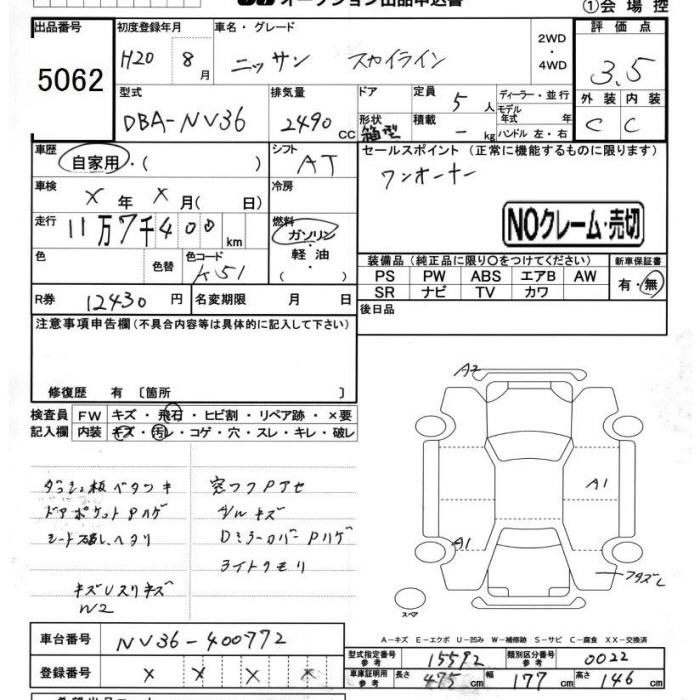 オークション出品申込書
①会場控
出品番号 5062
初度登録年月 H20 8月
車名・グレード ニッサン スカイライン
2WD・4WD
評価点 3.5
外装 C 内装 C
型式 DBA-NV36
排気量 2490 CC
ドア 形状 箱型
定員 5人
積載 - kg
ディーラー・並行
モデル年式 年
ハンドル 左・右
車歴 自家用・( )
シフト AT
セールスポイント (正常に機能するものに限ります)
ワンオーナー
車検 X年X月( 日)
冷房
NOクレーム・売切
走行 11万7千400km
燃料 ガソリン・軽油・( )
色 色替 色コード K51
装備品 (純正品に限り○をつけてください)
新車保証書 有・無
PS PW ABS エアB AW
SR ナビ TV カワ
R券 12430円
名変期限 月 日
後日品
注意事項申告欄 (不具合内容等は具体的に記入して下さい)
修復歴 有 〔箇所 〕
検査員記入欄
FW キズ・飛石・ヒビ割・リペア跡・×要
内装 キズ・汚レ・コゲ・穴・スレ・キレ・破レ
ダッシュ板ベタツキ
ドアポケットPハゲ
シート破レ、ヘタリ
キズUスリキズ
W2
窓フクPアセ
Dミラーカバー Pハゲ
ライトクモリ
A2
A1
A1
スペア
A-キズ E-エクボ U-凹み W-補修跡 S-サビ C-腐食 XX-交換済
車台番号 NV36-400772
登録番号 X X X X
型式指定番号 参考 15592
類別区分番号 参考 0022
車庫証明用 参考 長さ 475 幅 177 高さ 146 cm